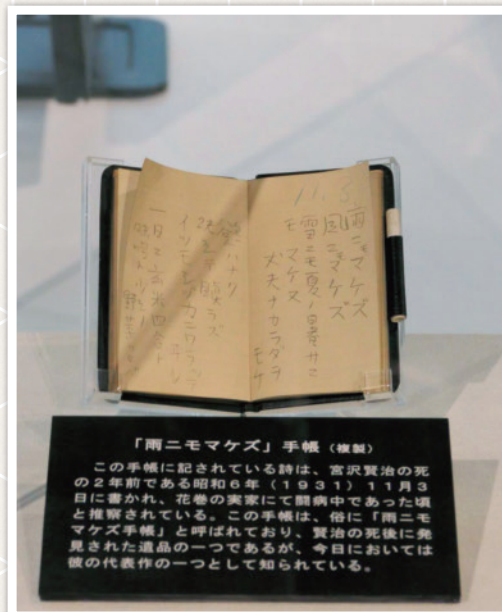 11.3.
雨ニモマケズ
風ニモマケズ
雪ニモ夏ノ暑サニ
モ マケヌ
丈夫ナカラダヲ
モチ
慾ハナク
決シテ瞋ラズ
イツモシヅカニワラッテ
ヰル
一日ニ玄米四合ト
味噌ト少シノ
野菜ヲタベ
「雨ニモマケズ」手帳（複製）
この手帳に記されている詩は、宮沢賢治の死
の2年前である昭和6年（1931）11月3
日に書かれ、花巻の実家にて闘病中であった頃
と推察されている。この手帳は、俗に「雨ニモ
マケズ手帳」と呼ばれており、賢治の死後に発
見された遺品の一つであるが、今日においては
彼の代表作の一つとして知られている。